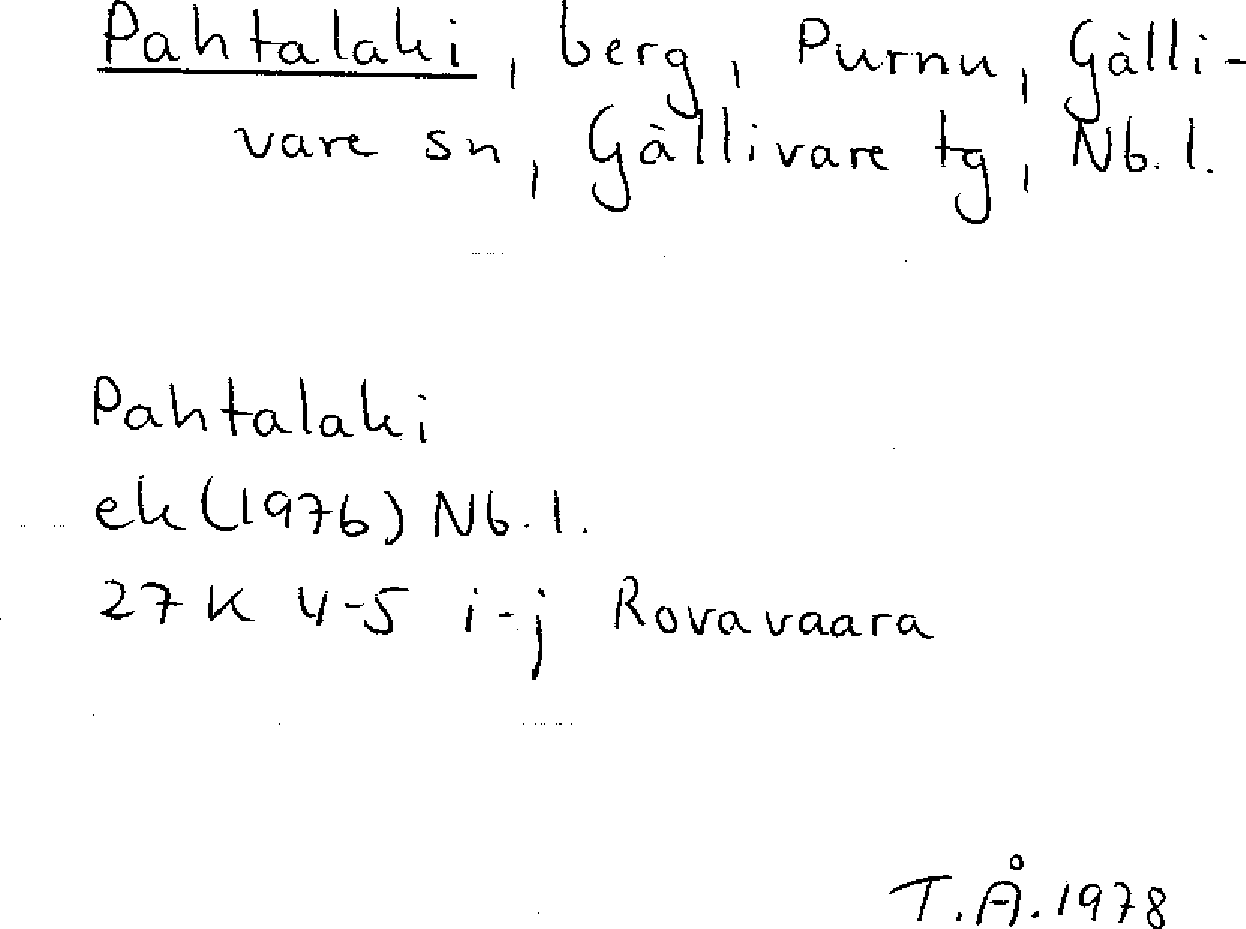 Pahtalaki, berg, Purnu, Gälli-
vare sn, Gällivare tg, Nb. l.
Pahtalaki
ek (1976) Nb. l.
27 K 4-5 i-j Rovavaara
T.Å. 1978